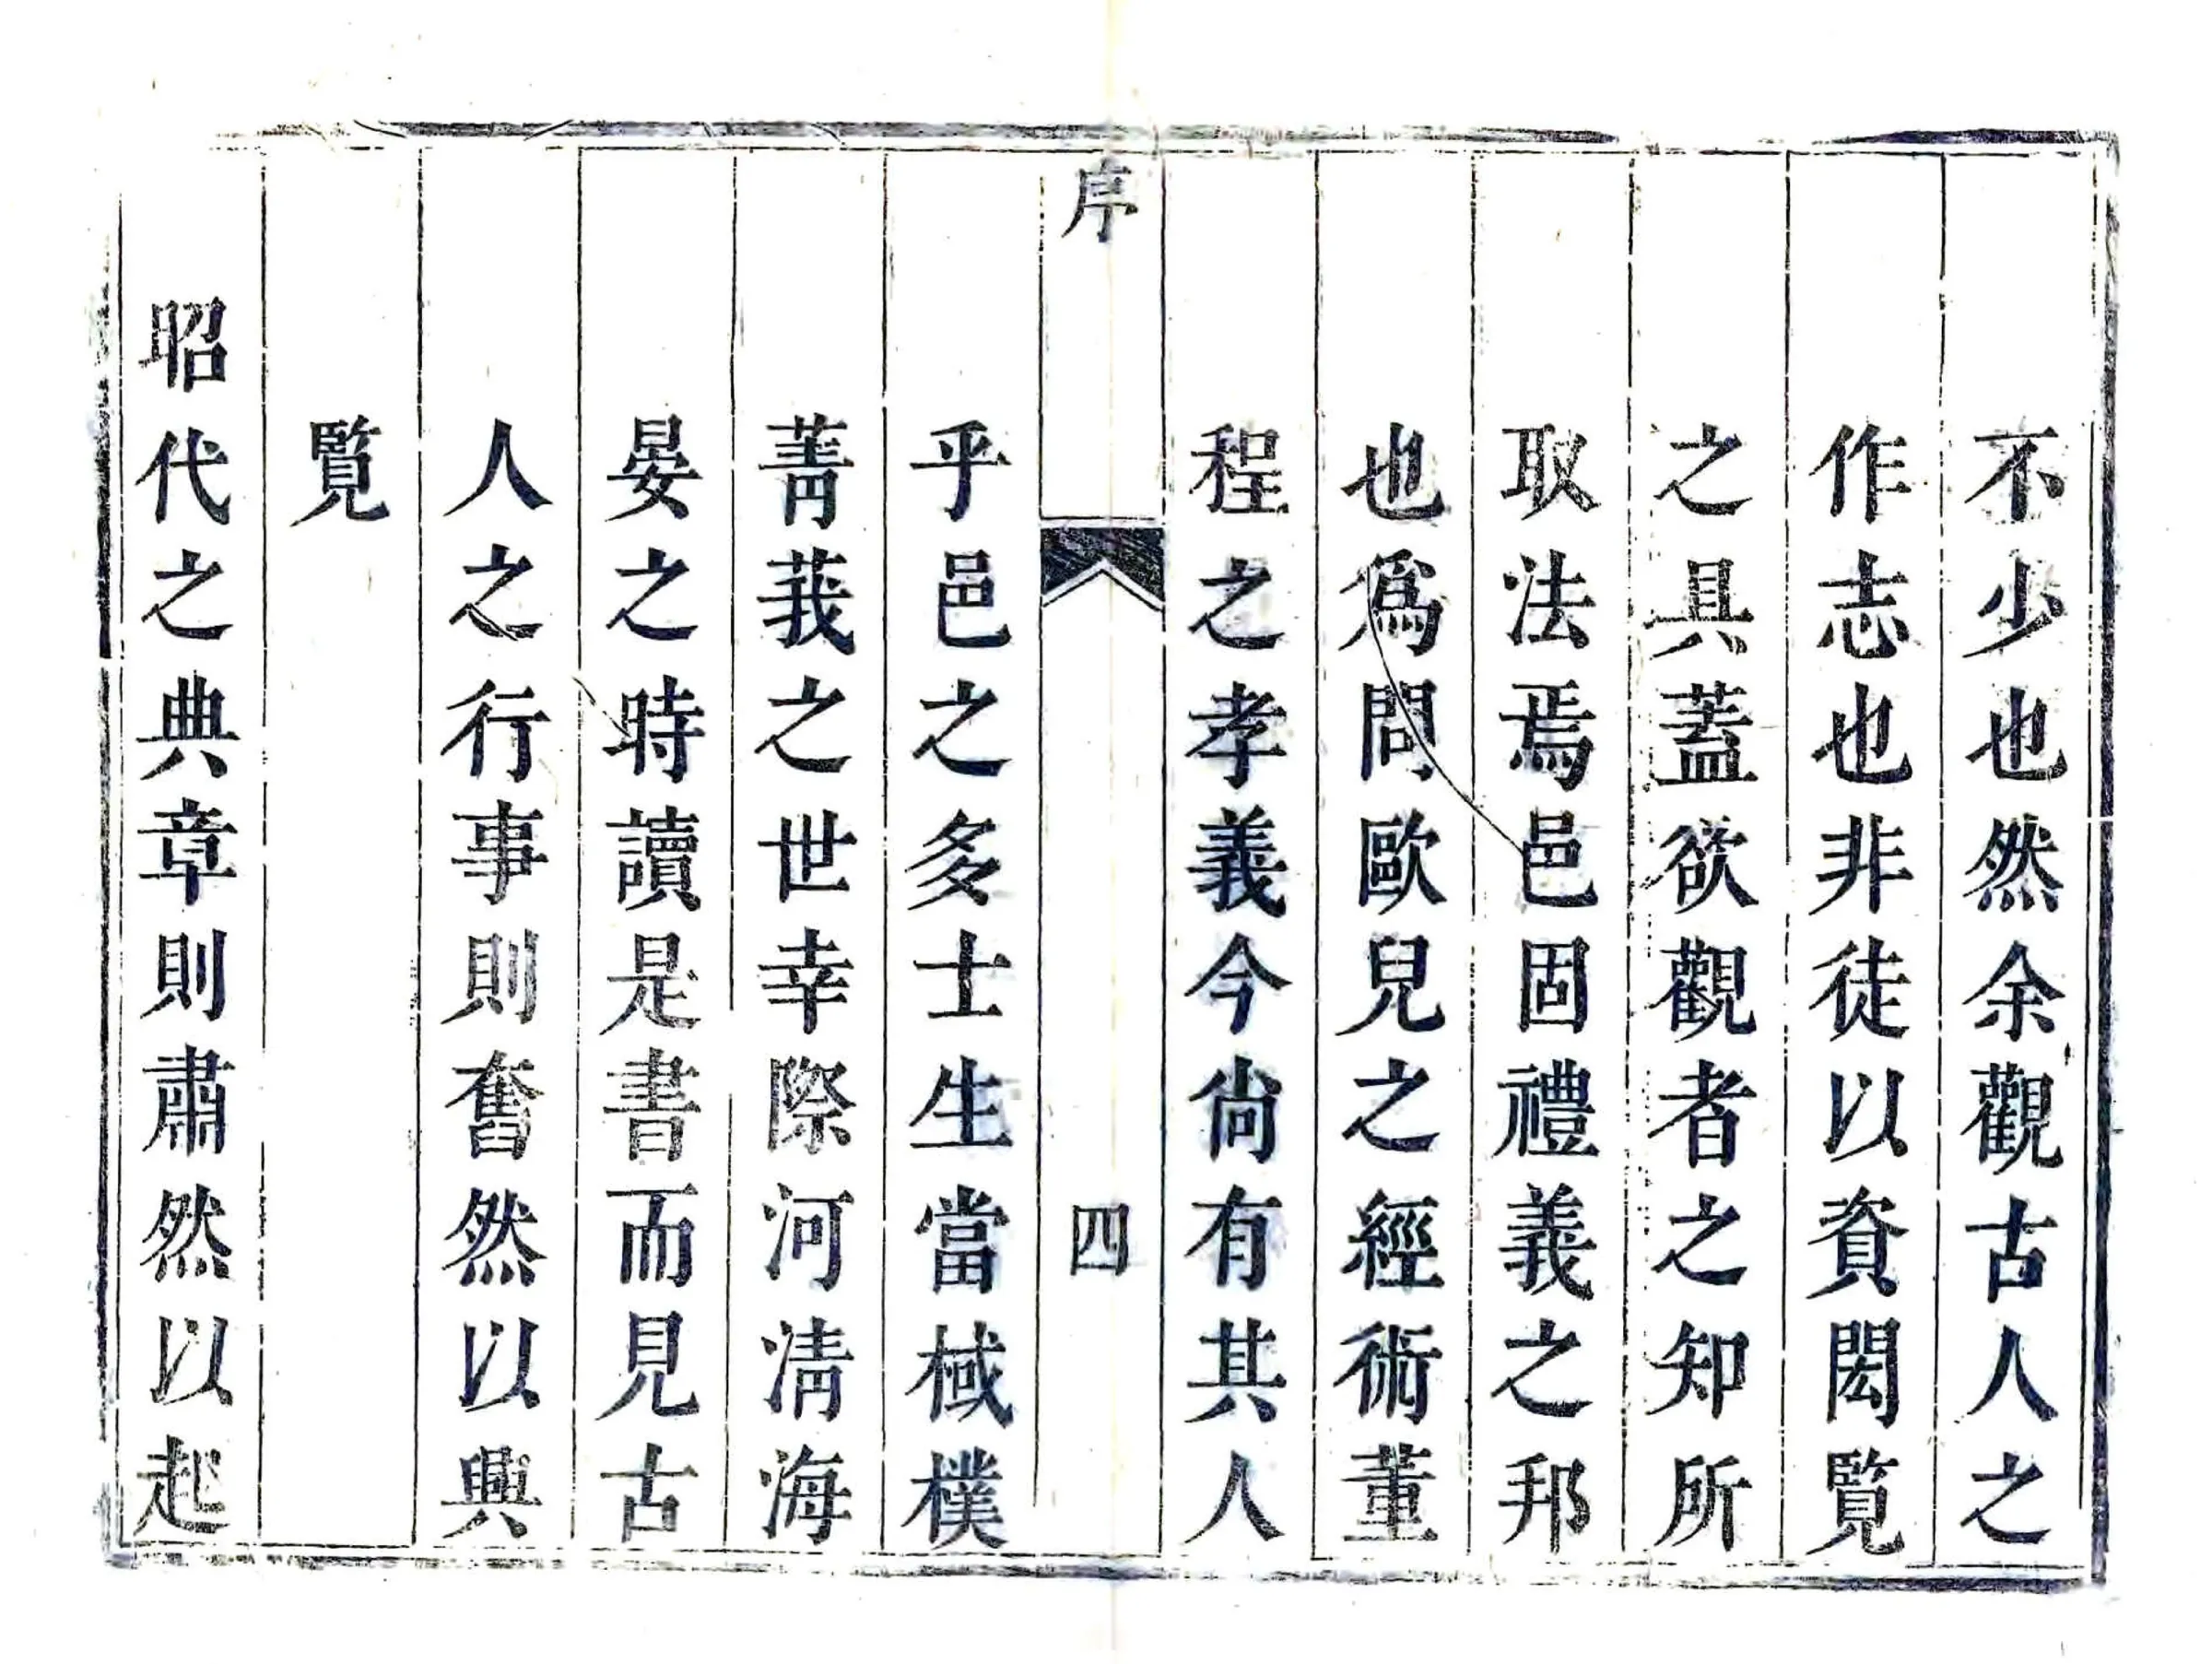 不少也然余觀古人之
作志也非徒以資閎覽
之具蓋欲觀者之知所
取法焉邑固禮義之邦
也爲問歐兒之經術董
程之孝義今尚有其人
序
四
乎邑之多士生當棫樸
菁莪之世幸際河淸海
晏之時讀是書而見古
人之行事則奮然以興
覽
昭代之典章則肅然以起